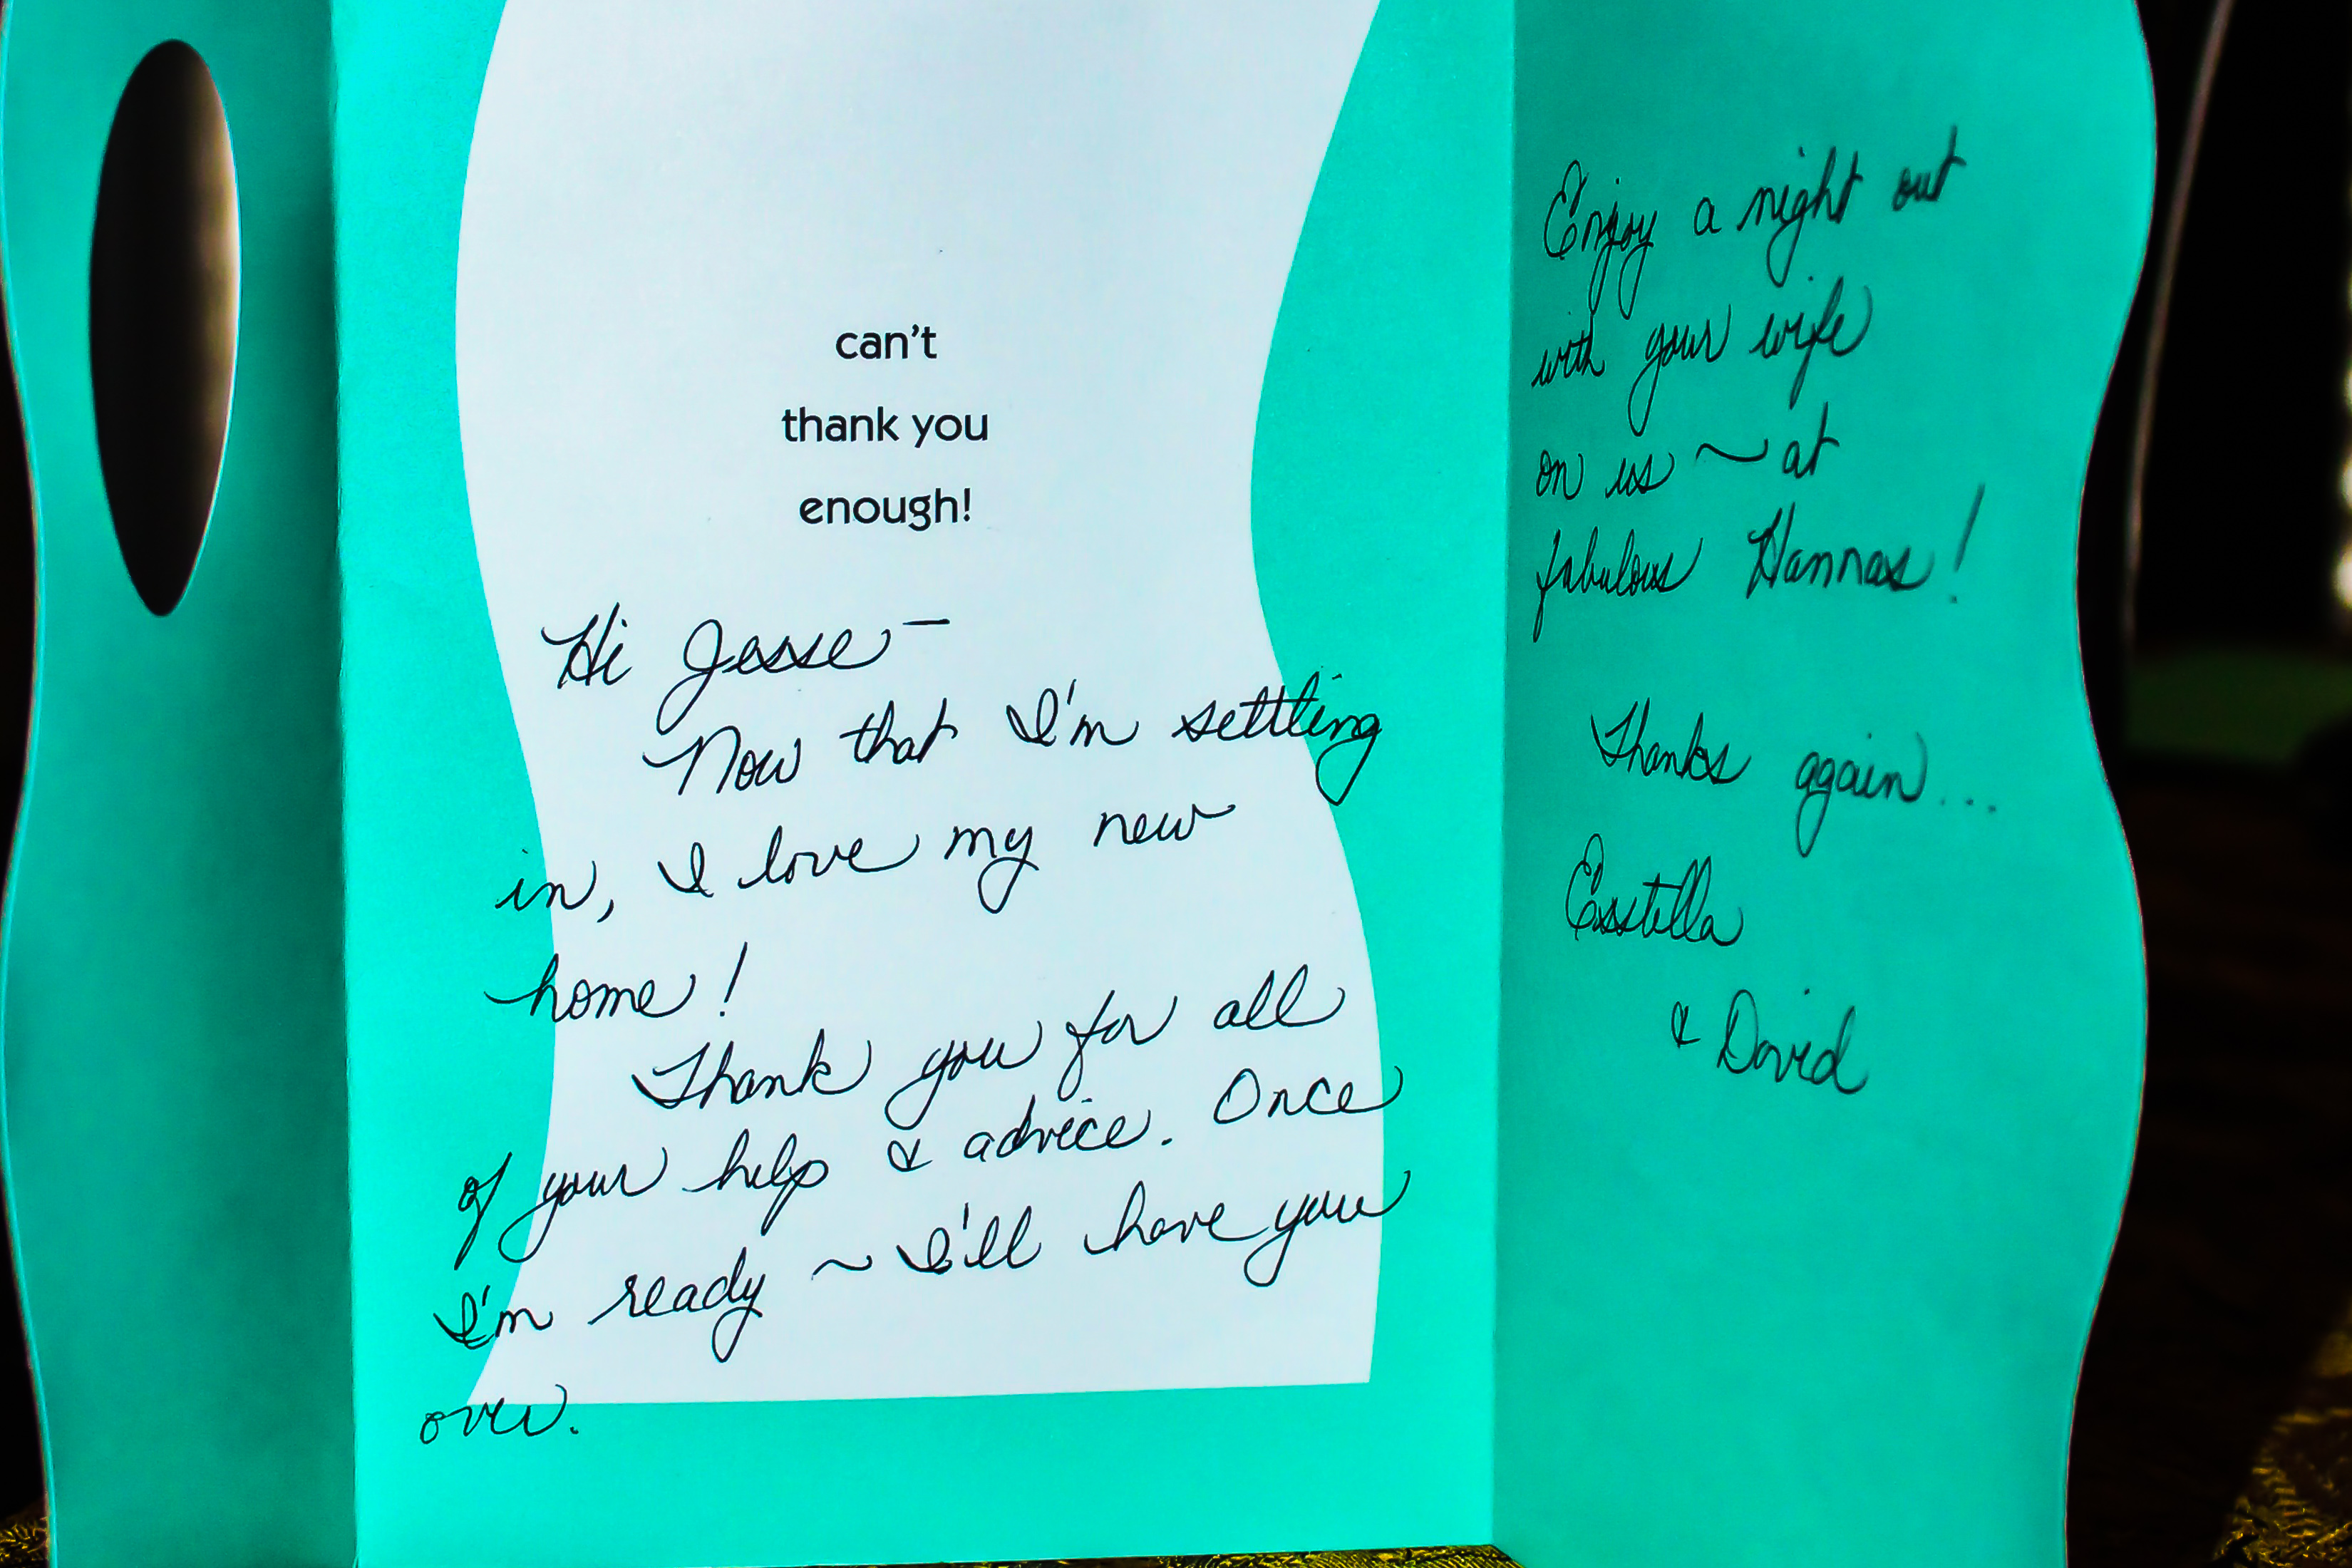 can't
thank you
enough!
Hi Jesse –
Now that I'm settling
in, I love my new
home!
Thank you for all
of your help & advice. Once
I'm ready ~ I'll have you
over.
Enjoy a night out
with your wife
on us ~ at
fabulous Hannas!
Thanks again...
Esstella
& David